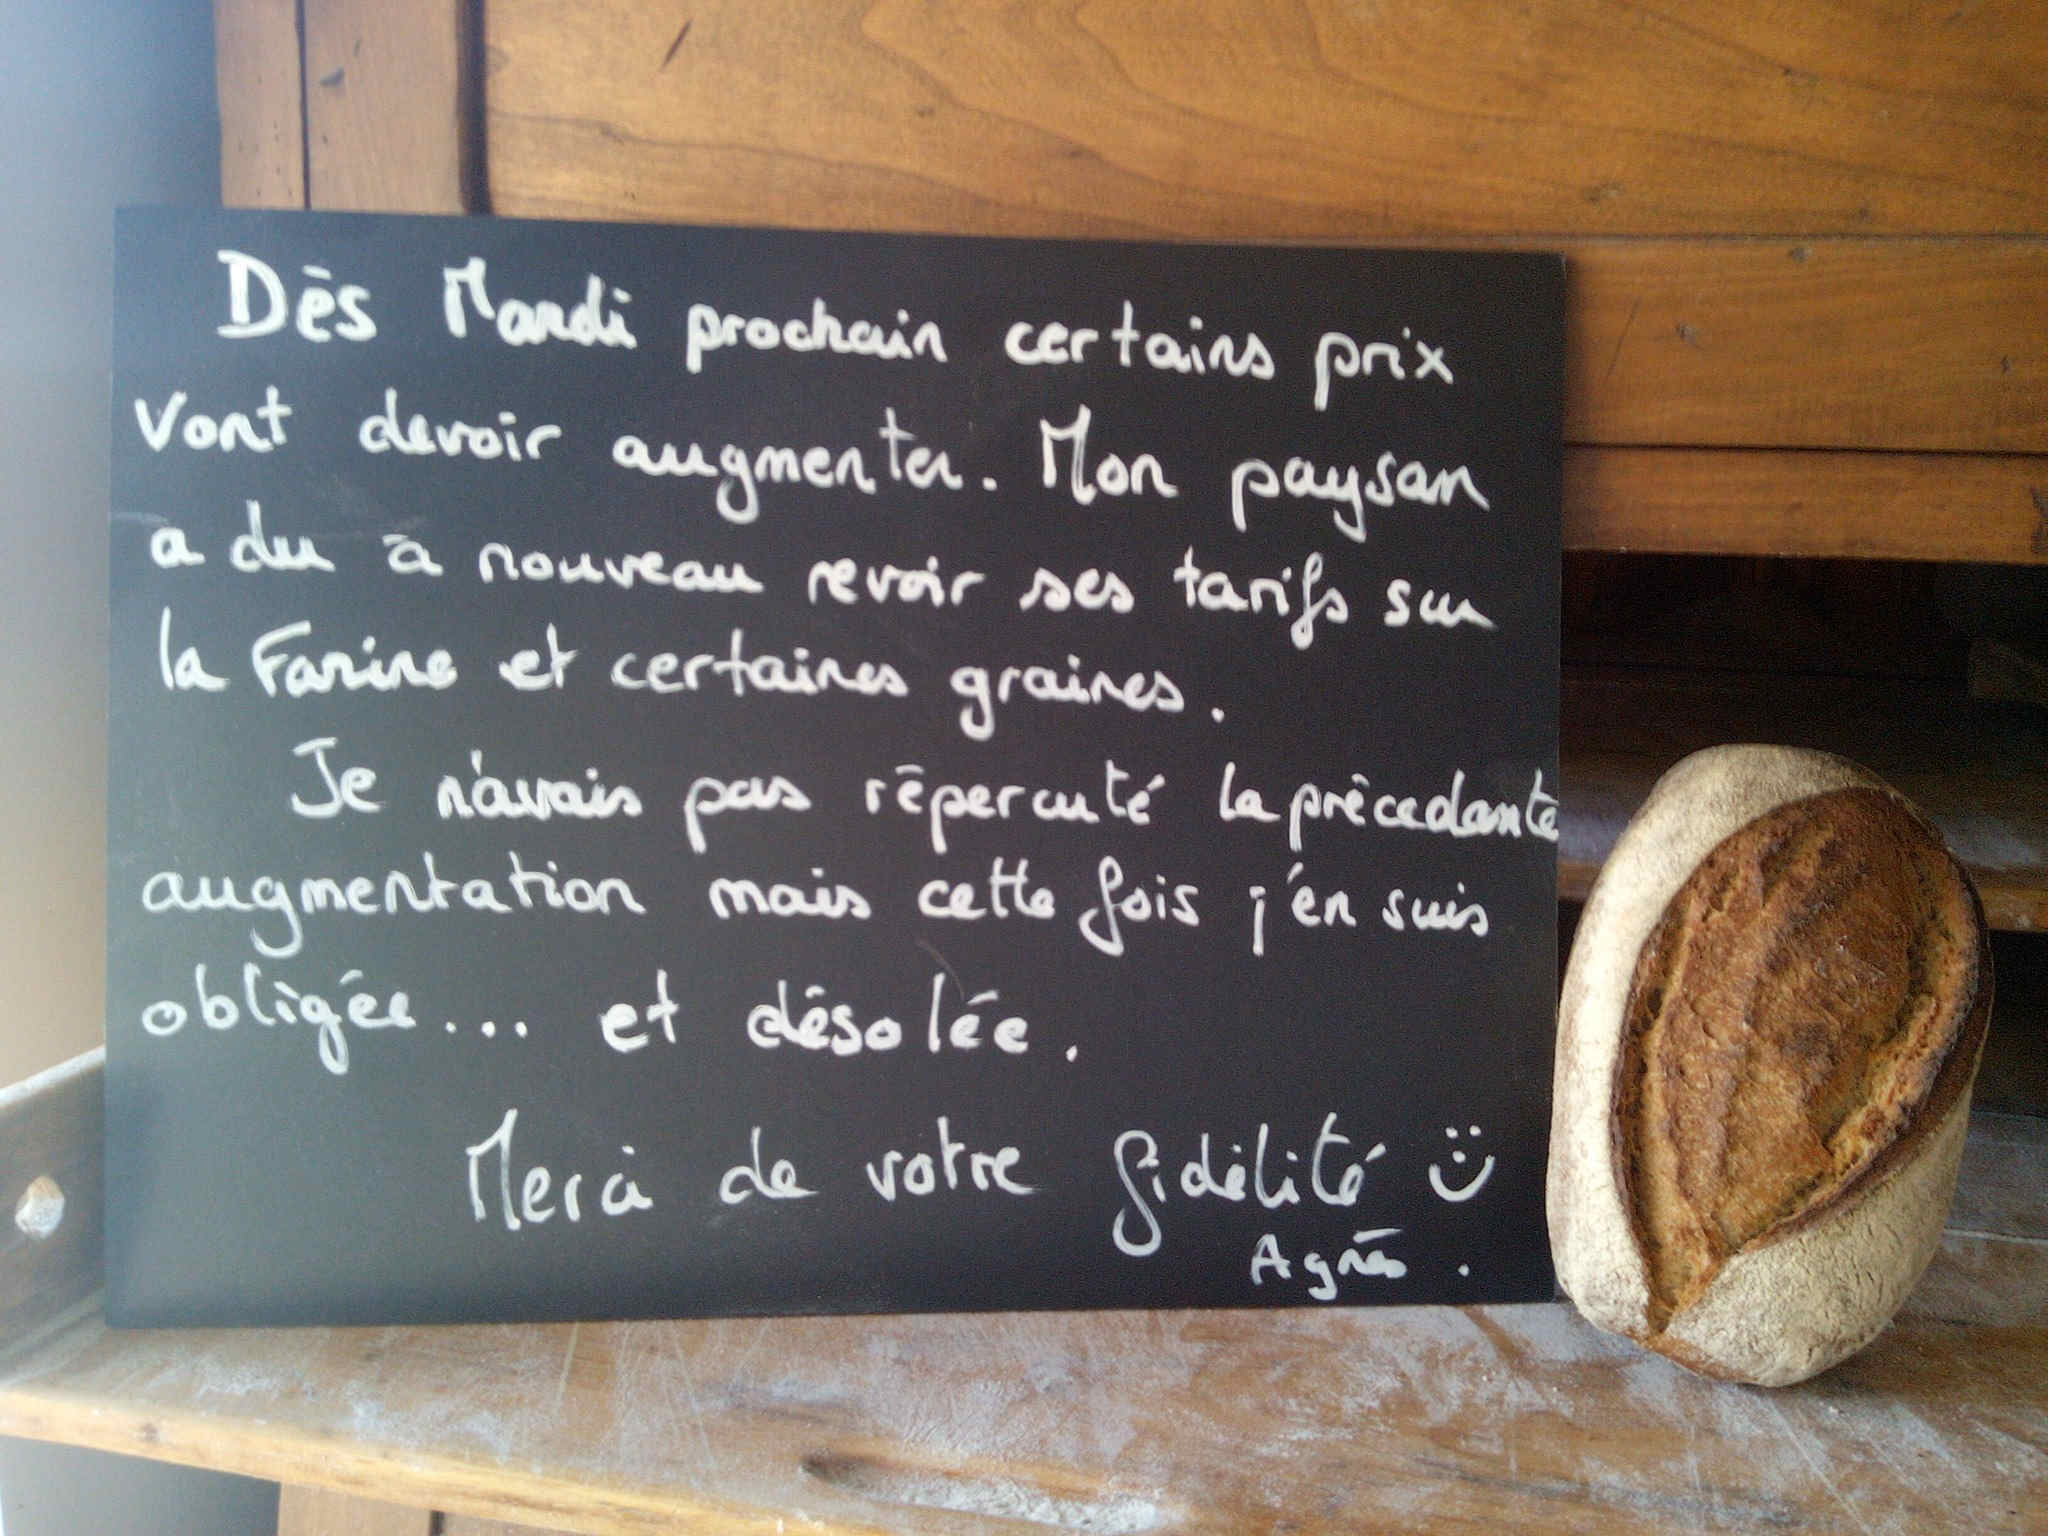 Dès Mardi prochain certains prix
vont devoir augmenter. Mon paysan
a du à nouveau revoir ses tarifs sur
la Farine et certaines graines.
Je n'avais pas répercuté la précedante
augmentation mais cette fois j'en suis
obligée... et désolée.
Merci de votre fidélité :)
Agnès.